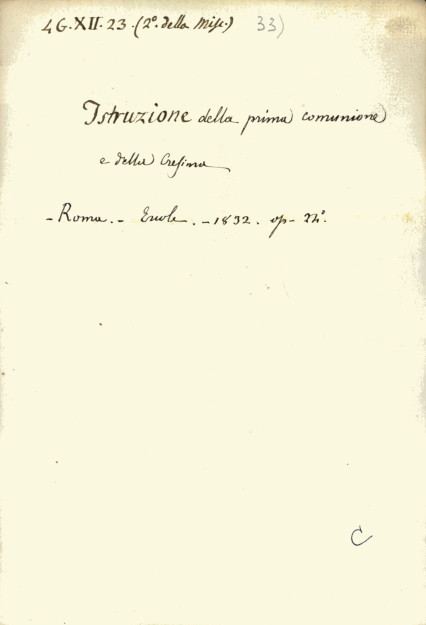 4G.XII.23.(2º. della Misc.) 33)
Istruzione della prima comunione
e della Cresima
- Roma. - Ercole. - 1832. op- 24º.
C